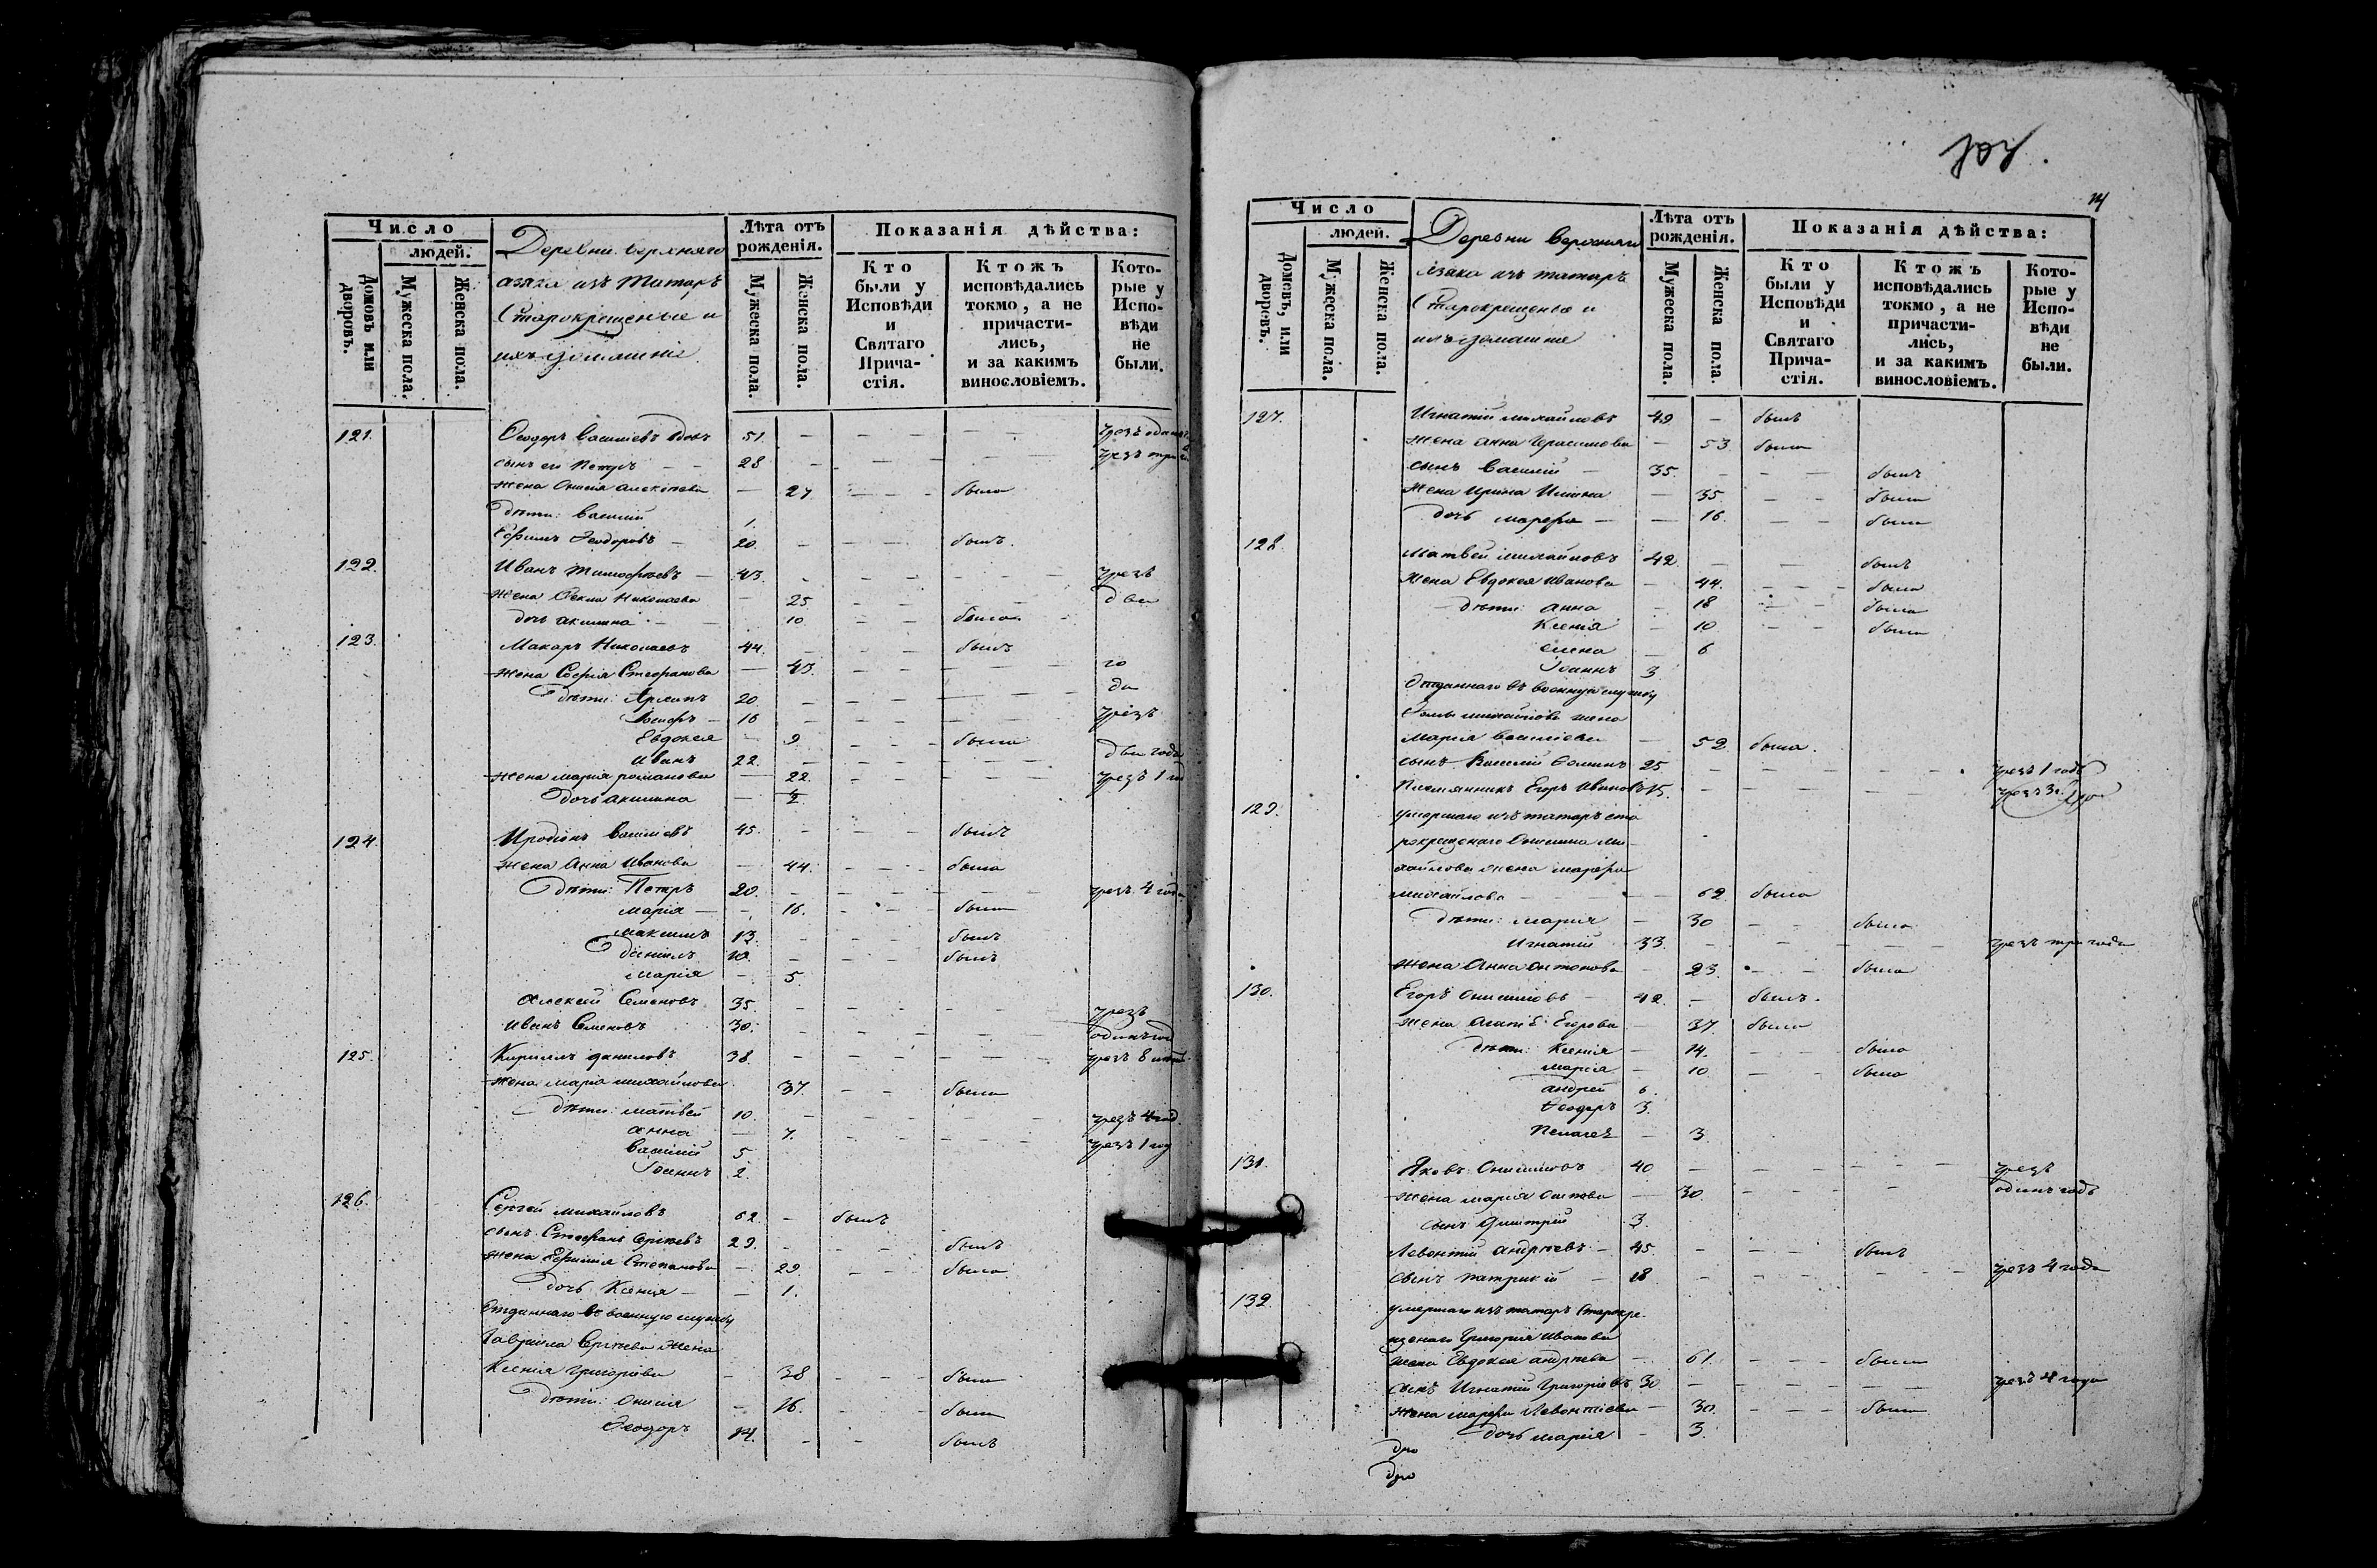 Число
людей.
Домовъ или дворовъ.
Мужеска пола.
Женска пола.
Деревни верхняго
азяка изъ Татаръ
Старокрещеные и
ихъ домашніе
Лѣта отъ рожденія.
Мужеска пола.
Женска пола.
Показанія дѣйства:
Кто были у Исповѣди и Святаго Прича- стія.
Ктожъ исповѣдались токмо, а не причасти- лись, и за какимъ винословіемъ.
Кото- рые у Испо- вѣди не были.
121. Ѳеодоръ Василіевъ вдовъ 51. — — — — —
сынъ его Петръ — — 28 — — — — чрезъ три
жена Онисія Алексѣева — 27. — — — была
дѣти: Василій 1.
Ефимъ Ѳеодоровъ — 20. — — — былъ.
122. Иванъ Тимофѣевъ — 43. — — — — чрезъ
жена Ѳекла Николаева — 25 — — — два
дочь Акилина — — 10 — — была
123. Макаръ Николаевъ 44. — — — былъ
жена Софія Стефанова — 43. — — — — го
дѣти: 20. — — — — да
Іосифъ — 16 — — — — чрезъ
Евдокея — 9 — — — была
Иванъ 22. — — — — два года
жена Марія Романова — 22. — — — — чрезъ 1
дочь Акилина — 1/2
124. Иродіонъ Василіевъ 45. — — — былъ
жена Анна Иванова — 44. — — — была
дѣти: Петръ 20. — — — — чрезъ 4 года
Марія — — 16. — — — была
Максимъ 13. — — — былъ
Даніилъ 10. — — — былъ
Марія — 5.
Алексѣй Семеновъ 35. — — — — чрезъ
Иванъ Семеновъ 30. — — — — одинъ год
125. Кириллъ Даниловъ 38. — — — — чрезъ 8
жена Марія Михайлова 37. — — была
дѣти: Матвей 10. — — — — чрезъ 4 год
Анна — 7. — — — — чрезъ 1 год
Василій 5
Іоаннъ 2.
126. Сергей Михайловъ 62. — былъ
сынъ Стефанъ Сергѣевъ 29. — — — былъ
жена Ефимия Степанова — 29. — — — была
дочь Ксенія — — 1.
Отданнаго въ военную службу
Гавріила Сергѣева жена
Ксенія Григорьева — 38 — — — была
дѣти: Онисія — 16. — — — была
Ѳеодоръ 14. — — — былъ
Число
людей.
Домовъ, или дворовъ.
Мужеска пола.
Женска пола.
Деревни верхняго
Азяка изъ татаръ
Старокрещеные и
ихъ домашніе
Лѣта отъ рожденія.
Мужеска пола.
Женска пола.
Показанія дѣйства:
Кто были у Исповѣди и Святаго Прича- стія.
Ктожъ исповѣдались токмо, а не причасти- лись, и за какимъ винословіемъ.
Кото- рые у Испо- вѣди не были.
127. Игнатій Михайловъ 49. — былъ
жена Анна Герасимова — 53. была
сынъ Василій — 35. — — — былъ
жена Ирина Ильина — 35 — — была
дочь Марфа — — 16. — — была
128. Матвей Михайловъ 42. — — былъ
жена Евдокея Иванова — 44. — — — была
дѣти: Анна — 18 — — была
Ксенія — 10. — — была
Елена — 6
Іоаннъ 3
Отданнаго въ военную службу
Михайлова жена
Марія Василіева — 52. была.
сынъ Василій 25 — — — — чрезъ 1 годъ
Племянникъ Егоръ Ивановъ 15. — — — —
129. умершаго изъ татаръ ста
рокрещенаго Ми-
хайлова жена Марфа
Михайлова — — — 62. была
дѣти: Марія — 30 — — была
Игнатій 33. — — — — чрезъ три года
жена Анна Антонова — 23. — — была
130. Егоръ Онисимовъ — 42. — былъ.
жена Егорова — 37. была
дѣти: Ксенія — 14. — — была
Марія — 10 — — была
Андрей 6.
Ѳеодоръ 3.
Пелагея — 3
131. Яковъ Онисимовъ 40 — — — — чрезъ
жена Марія Осипова — 30. — — — одинъ годъ
сынъ Дмитрій 3.
Левонтій Андрѣевъ — 45. — — — былъ
сынъ Патрикій — 18 — — — — чрезъ 4 года
132. умершаго изъ татаръ Старокре-
щенаго Григорія Иванова
жена Евдокея Андрѣева — 61. — — — была
сынъ Игнатій Григорьевъ 30 — — — — чрезъ 4 года
жена Марфа Левонтіева — 30. — — — была
дочь Марія — 3.